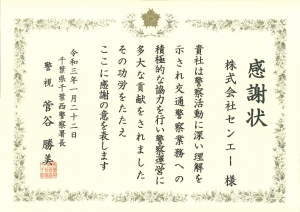 感謝状
株式会社センエー 様
貴社は警察活動に深い理解を
示され交通警察業務への
積極的な協力を行い警察運営に
多大な貢献をされました
その功労をたたえ
ここに感謝の意を表します
令和三年一月二十二日
千葉県千葉西警察署長
警視 菅谷 勝美